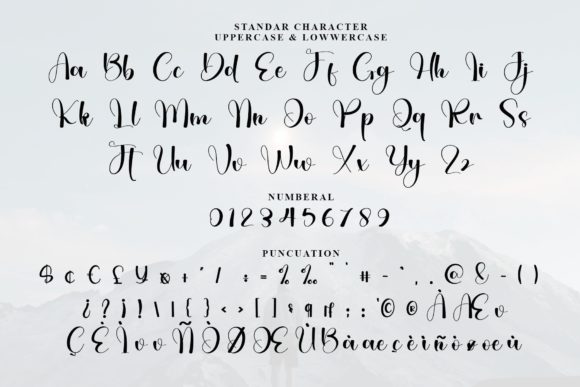 STANDAR CHARACTER
UPPERCASE & LOWWERCASE
Aa Bb Cc Dd Ee Ff Gg Hh Ii Jj
Kk Ll Mm Nn Oo Pp Qq Rr Ss
Tt Uu Vv Ww Xx Yy Zz
NUMBERAL
0 1 2 3 4 5 6 7 8 9
PUNCUATION
$ ¢ € £ ¥ ¤ + ' / : = % ‰ " ' # - ` , . @ & - ( )
¿ ? ¡ ! \ | { } < > [ ] § ¶ ; : © ® À Æ
Ç È Ì Ñ Ò Ø Œ Ù ß à æ ç è ì ñ ò ø œ ù